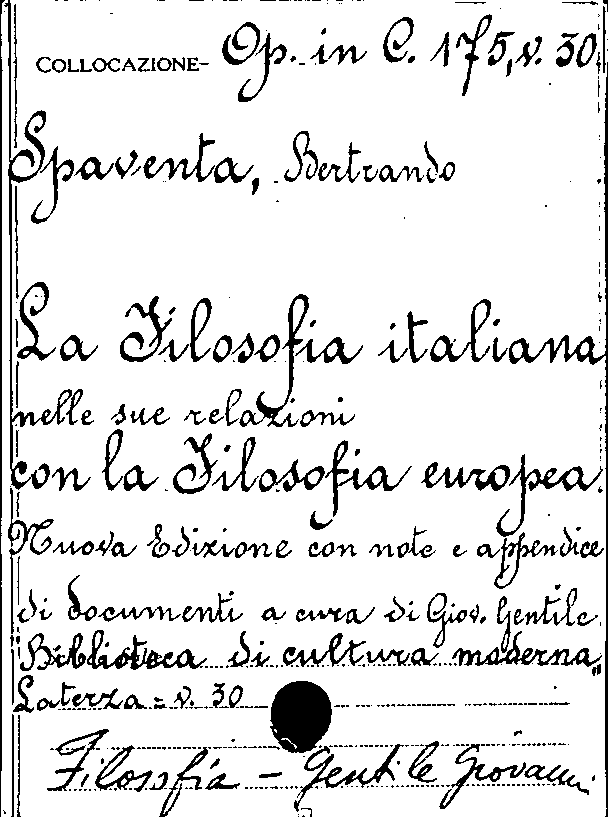 COLLOCAZIONE- Op. in C. 175, v. 30
Spaventa, Bertrando
La Filosofia italiana
nelle sue relazioni
con la Filosofia europea.
Nuova Edizione con note e appendice
di documenti a cura di Giov. Gentile.
"Biblioteca di cultura moderna"
Laterza = v. 30
Filosofia - Gentile Giovanni